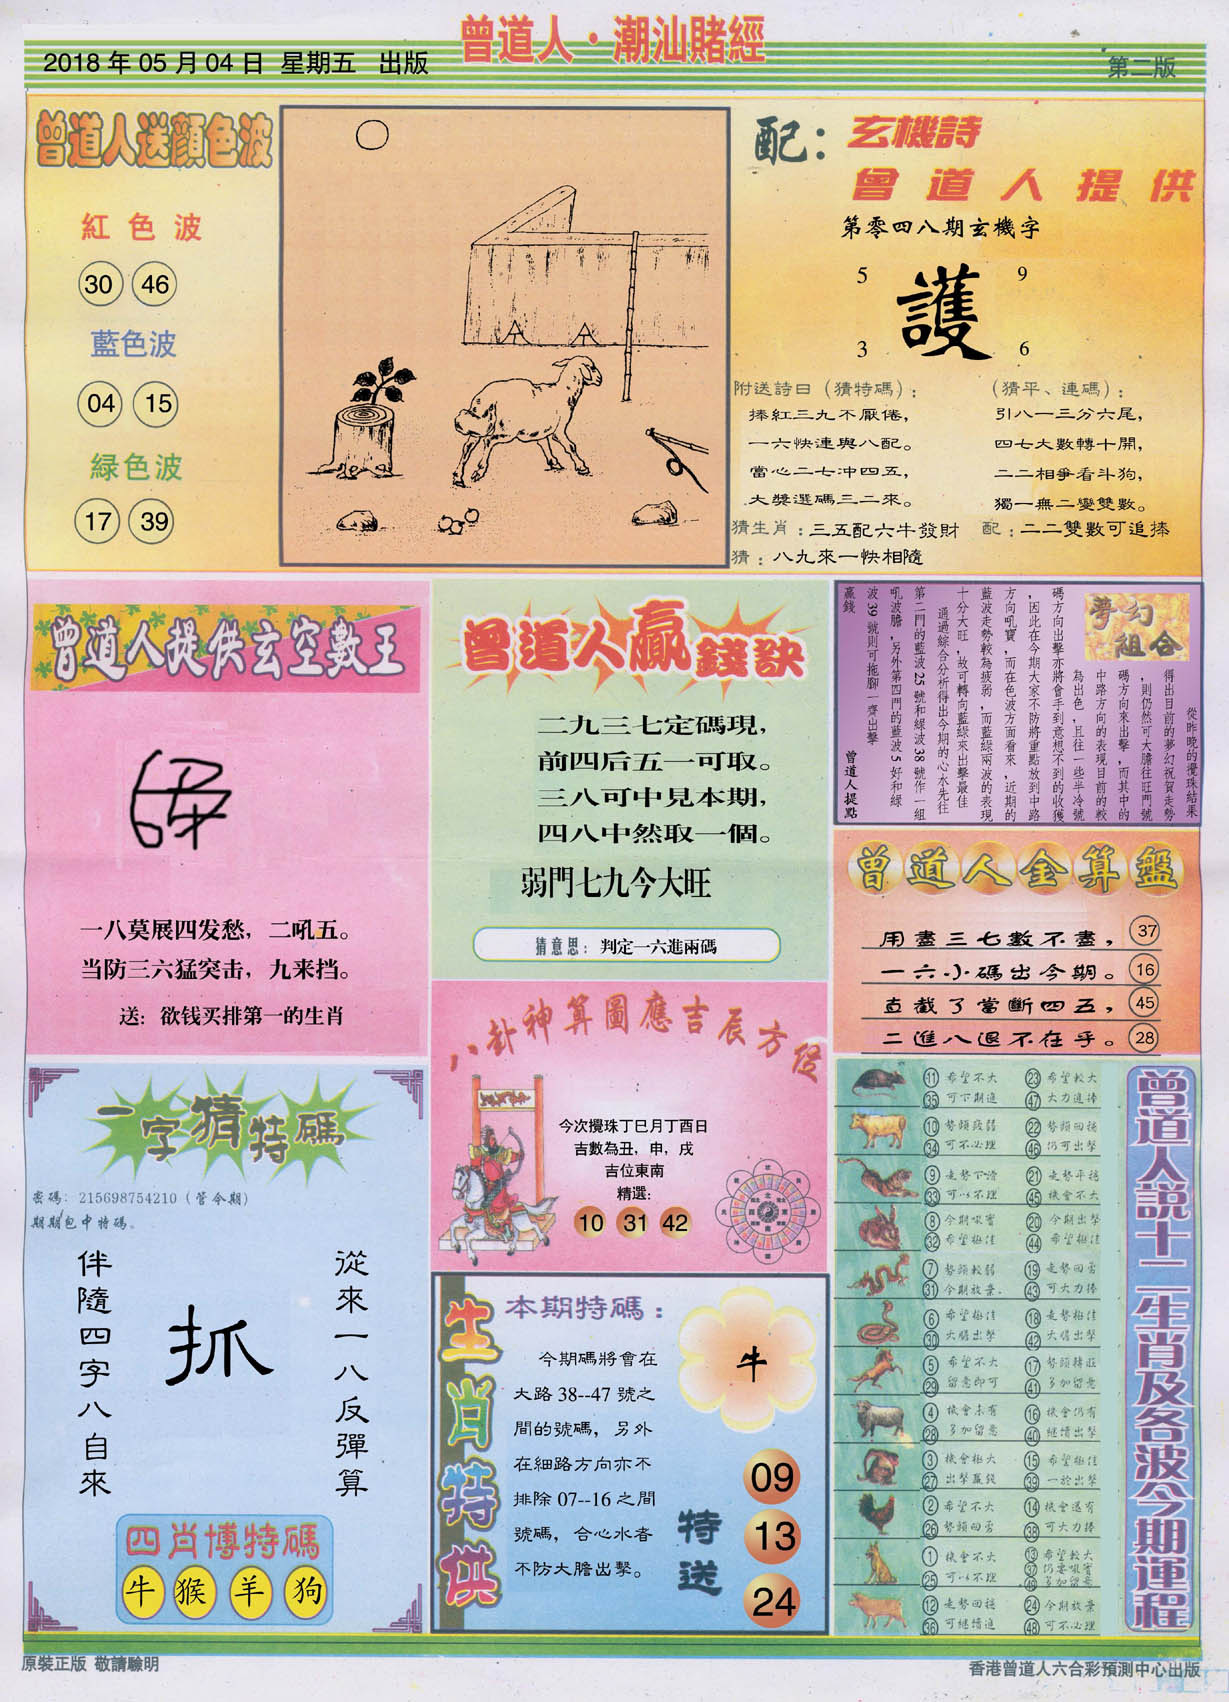 曾道人·潮汕賭經
2018 年 05 月 04 日 星期五 出版
第二版
曾道人送顏色波
紅色波
30 46
藍色波
04 15
緑色波
17 39
配：玄機詩
曾道人提供
第零四八期玄機字
5 9
護
3 6
附送詩曰（猜特碼）：
捧紅三九不厭倦，
一六快連與八配。
當心二七冲四五，
大獎選碼三二來。
（猜平、連碼）：
引八一三分六尾，
四七大數轉十開，
二二相爭看斗狗，
獨一無二變雙數。
猜生肖：三五配六牛發財
配：二二雙數可追捧
猜：八九來一快相隨
曾道人提供玄空數王
一八莫展四发愁，二吼五。
当防三六猛突击，九来挡。
送：欲钱买排第一的生肖
曾道人贏錢訣
二九三七定碼現，
前四后五一可取。
三八可中見本期，
四八中然取一個。
弱門七九今大旺
猜意思：判定一六進兩碼
夢幻
組合
從昨晚的攪珠結果
得出目前的夢幻祝賀走勢
，則仍然可大膽往旺門號
碼方向來出擊，而其中的
中路方向的表現目前的較
為出色，且往一些半冷號
碼方向出擊亦將會手到意想不到的收獲
，因此在今期大家不防將重點放到中路
方向吼寶，而在色波方面看來，近期的
藍波走勢較為疲弱，而藍綠兩波的表現
十分大旺，故可轉向藍綠來出擊最佳
通過綜合分析得出今期的心水先往
第二門的藍波 25 號和綠波 38 號作一組
吼波膽，另外第四門的藍波 5 好和綠
波 39 號則可拖腳一齊出擊
贏錢
曾道人提點
曾道人金算盤
用盡三七數不盡， 37
一六小碼出今期。 16
直截了當斷四五， 45
二進八退不在乎。 28
八卦神算圖應吉辰方位
今次攪珠丁巳月丁酉日
吉數為丑，申，戌
吉位東南
精選：
10 31 42
一字猜特碼
密碼：215698754210（管今期）
期期包中特碼。
從來一八反彈算
抓
伴隨四字八自來
四肖博特碼
牛 猴 羊 狗
生肖特供
本期特碼：
今期碼將會在
大路 38--47 號之
間的號碼，另外
在細路方向亦不
排除 07--16 之間
號碼，合心水者
不防大膽出擊。
牛
特送
09
13
24
曾道人説十二生肖及各波今期運程
11 希望不大 23 希望較大
35 可下期進 47 大力進捧
10 勢頭疲弱 22 勢頭回穩
34 可不必理 46 仍可出擊
9 走勢下滑 21 走勢平穩
33 可以不理 45 機會不大
8 今期吸實 20 今期出擊
32 希望極佳 44 希望極佳
7 勢頭較弱 19 走勢回勇
31 今期放棄 43 可大力捧
6 希望極佳 18 走勢極佳
30 大膽出擊 42 大膽出擊
5 希望不大 17 勢頭轉旺
29 留意即可 41 多加留意
4 機會未有 16 機會仍有
28 多加留意 40 繼續出擊
3 機會極大 15 希望極佳
27 出擊贏錢 39 一於出擊
2 希望不大 14 機會還有
26 勢頭回勇 38 可大力捧
1 機會不大 13 希望較大
25 可以不理 37 仍要吸實
49 多加留意
12 走勢回穩 24 今期放棄
36 可繼續進 48 可不必理
原裝正版 敬請驗明
香港曾道人六合彩預測中心出版